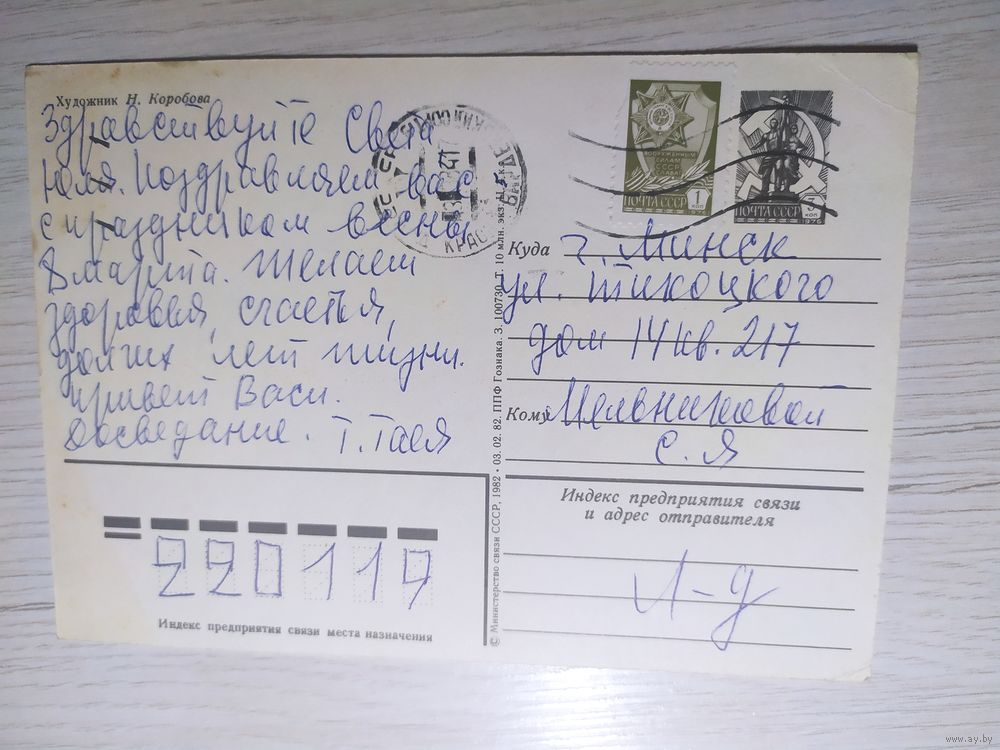 Художник Н. Коробова
Здравствуйте Света
Юля. Поздравляем вас
с праздником весны
8 марта. Желаем
здоровья, счастья,
долгих лет жизни.
привет Васи.
Досведание. Т. Тася
ПОЧТА СССР 1 КОП
ВООРУЖЕННЫМ
СИЛАМ
СССР
СЛАВА
1976
ПОЧТА СССР 3 КОП
1976
Куда г. Минск
ул. Тикоцкого
дом 14 кв. 217
Кому Мельниковой
С. Я
Индекс предприятия связи
и адрес отправителя
Л-д
220117
Индекс предприятия связи места назначения
© Министерство связи СССР, 1982 · 03. 02. 82. ППФ Гознака. З. 100730. Т. 10 млн. экз. Ц. 5 к.
www.ay.by